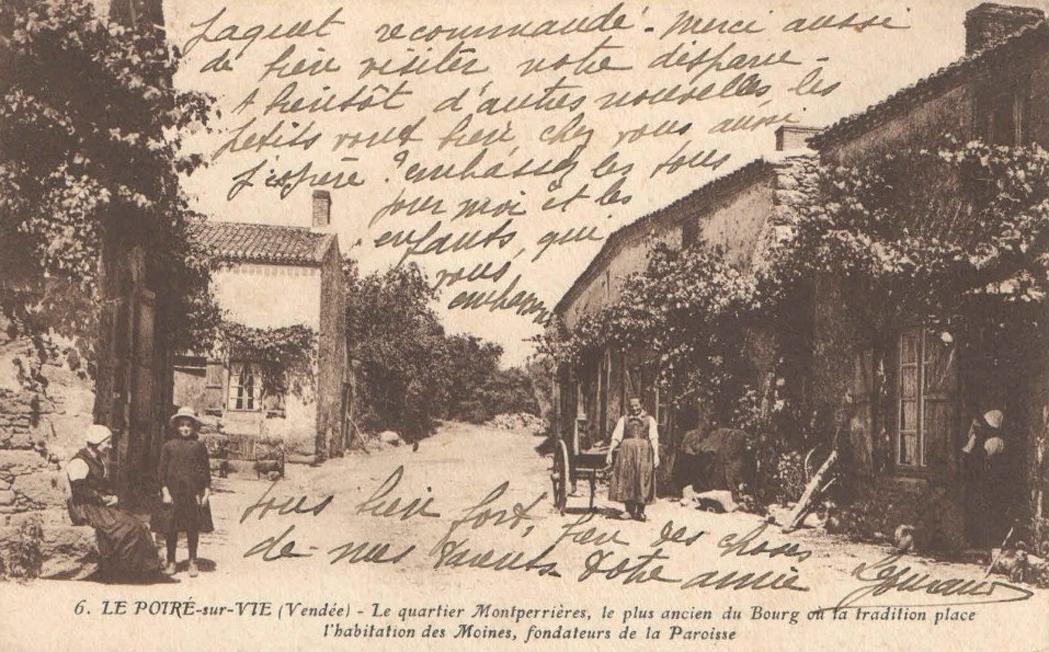 paquet recommandé. Merci aussi
de bien visiter notre disparue.
A bientôt d'autres nouvelles, les
petits vont bien chez vous aussi
j'espère? embrassez les tous
pour moi et les
enfants, qui
vous
embrassent
tous bien fort, bien des choses
de nos parents. Votre amie
6. LE POIRÉ-sur-VIE (Vendée) - Le quartier Montperrières, le plus ancien du Bourg où la tradition place
l'habitation des Moines, fondateurs de la Paroisse